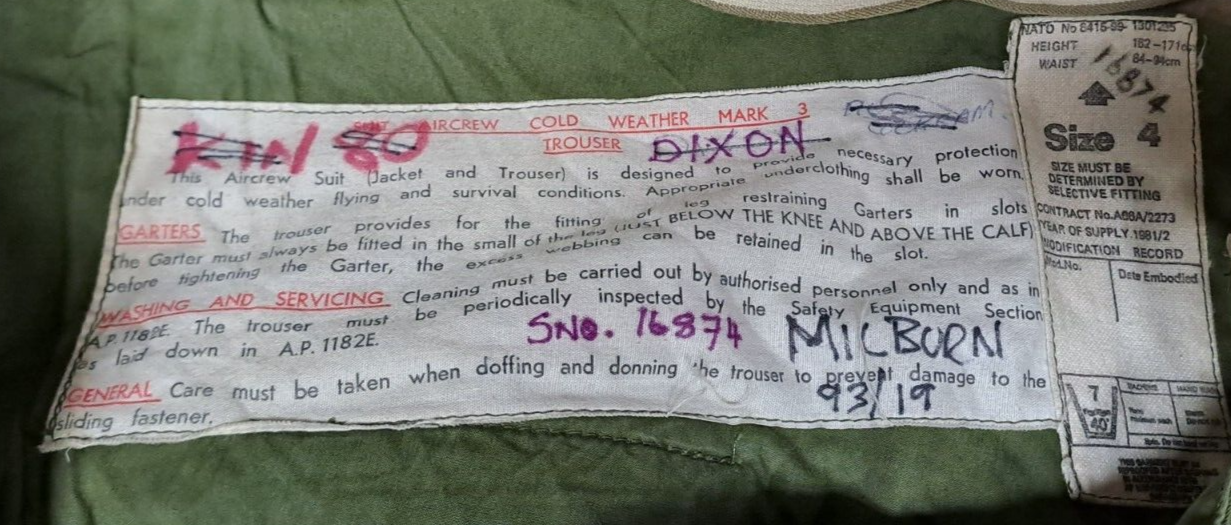 SUIT AIRCREW COLD WEATHER MARK 3
TROUSER
KIN 80
DIXON
This Aircrew Suit (Jacket and Trouser) is designed to provide necessary protection
under cold weather flying and survival conditions. Appropriate underclothing shall be worn.
GARTERS The trouser provides for the fitting of leg restraining Garters in slots
The Garter must always be fitted in the small of the leg (JUST BELOW THE KNEE AND ABOVE THE CALF)
before tightening the Garter, the excess webbing can be retained in the slot.
WASHING AND SERVICING Cleaning must be carried out by authorised personnel only and as in
A.P. 1182E. The trouser must be periodically inspected by the Safety Equipment Section
as laid down in A.P. 1182E.
SNO. 16874
MILBURN
93/19
GENERAL Care must be taken when doffing and donning the trouser to prevent damage to the
sliding fastener.
NATO No 8415-99-1301235
HEIGHT 162-171cm
WAIST 84-94cm
16874
Size 4
SIZE MUST BE
DETERMINED BY
SELECTIVE FITTING
CONTRACT No. A68A/2273
YEAR OF SUPPLY. 1981/2
MODIFICATION RECORD
Mod. No. Date Embodied
7
40°